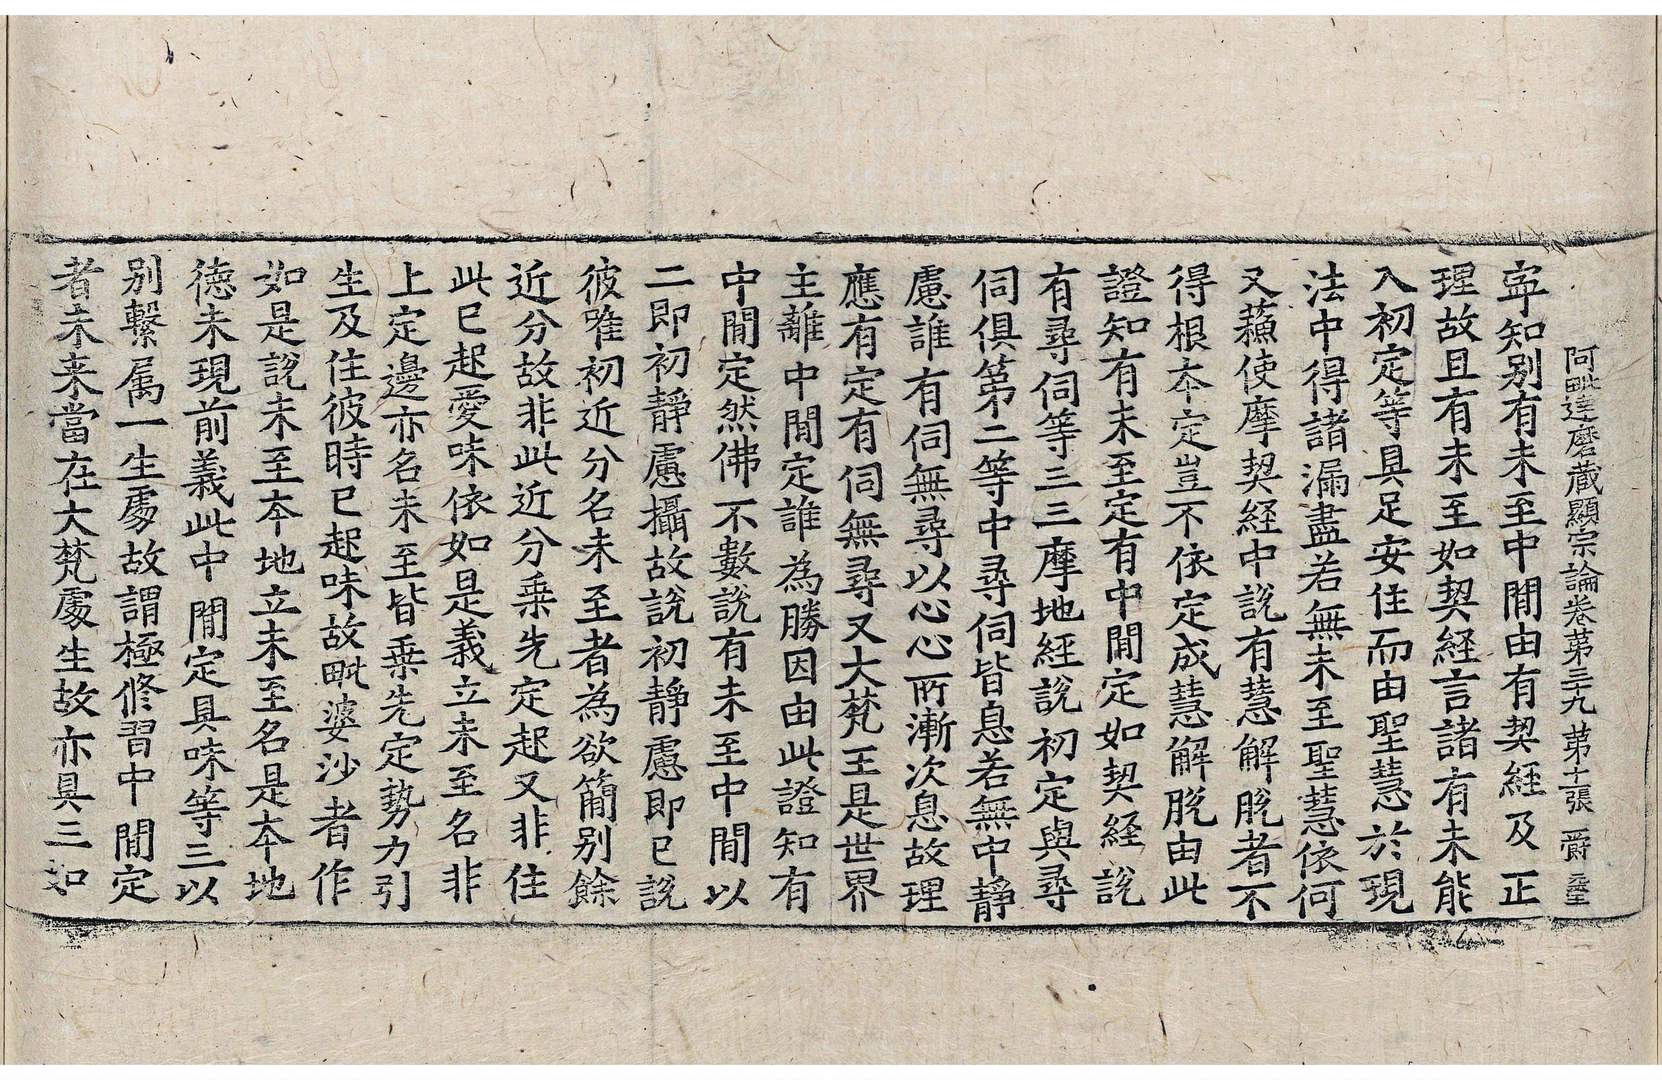 阿毗達磨藏顯宗論卷第三十九 第十二張 爵
寧知别有未至中閒由有契經及正
理故且有未至如契經言諸有未能
入初定等具足安住而由聖慧於現
法中得諸漏盡若無未至聖慧依何
又蘓使摩契經中説有慧解脫者不
得根夲定豈不依定成慧解脫由此
證知有未至定有中閒定如契經說
有尋伺等三三摩地經說初定與尋
伺俱第二等中尋伺皆息若無中靜
慮誰有伺無尋以心心所漸次息故理
應有定有伺無尋又大梵王是世界
主離中閒定誰為勝因由此證知有
中閒定然佛不數說有未至中閒以
二即初靜慮攝故說初靜慮即已說
彼唯初近分名未至者為欲簡别餘
近分故非此近分乗先定起又非住
此已起愛味依如是義立未至名非
上定邊亦名未至皆乗先定勢力引
生及住彼時已起味故毗婆沙者作
如是說未至夲地立未至名是夲地
德未現前義此中閒定具味等三以
别繫属一生處故謂極修習中閒定
者未来當在大梵處生故亦具三如